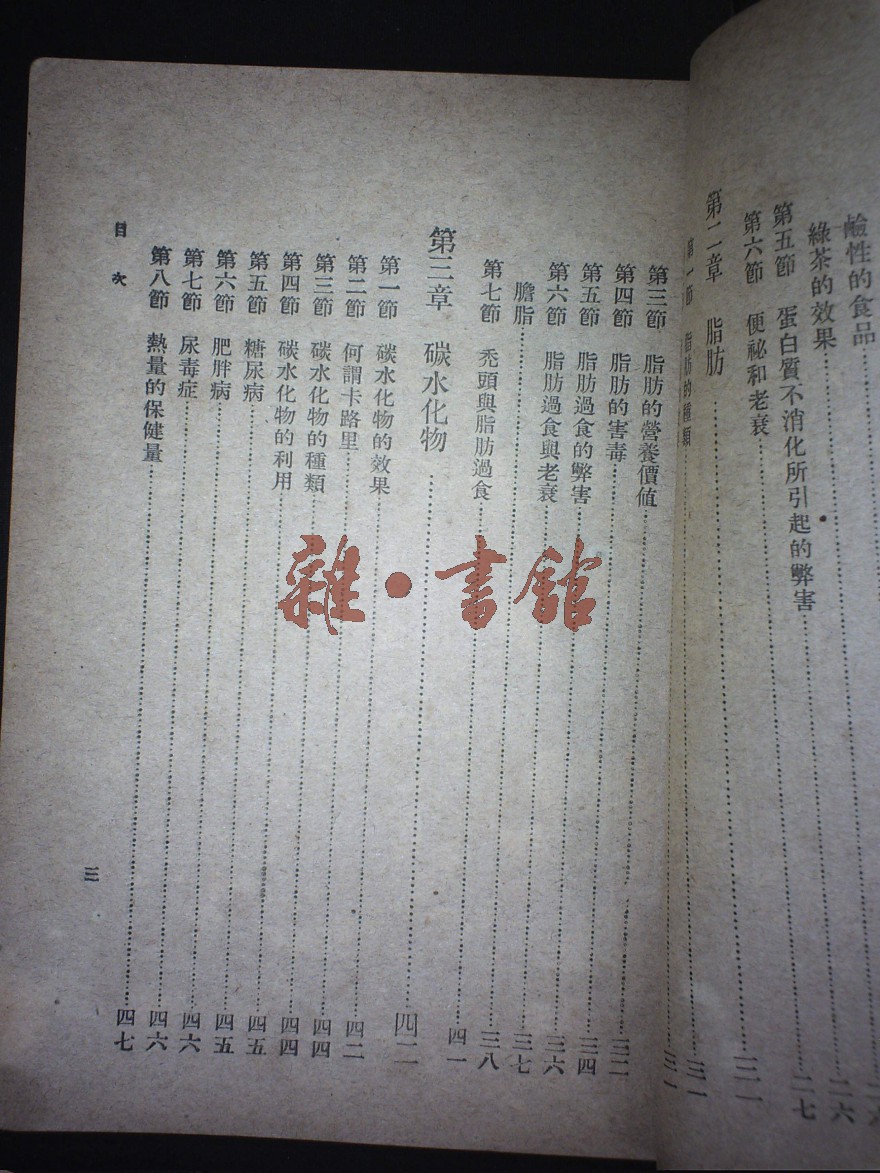 鹼性的食品
綠茶的效果
第五節 蛋白質不消化所引起的弊害……二六
第六節 便祕和老衰……二七
第二章 脂肪……三一
第一節 脂肪的種類……三一
三一
第三節 脂肪的營養價值……三二
第四節 脂肪的害毒……三四
第五節 脂肪過食的弊害……三六
第六節 脂肪過食與老衰……三七
膽脂……三八
第七節 禿頭與脂肪過食……四一
第三章 碳水化物……四二
第一節 碳水化物的效果……四二
第二節 何謂卡路里……四四
第三節 碳水化物的種類……四四
第四節 碳水化物的利用……四五
第五節 糖尿病……四五
第六節 肥胖病……四六
第七節 尿毒症……四六
第八節 熱量的保健量……四七
目次
三
雜·書館